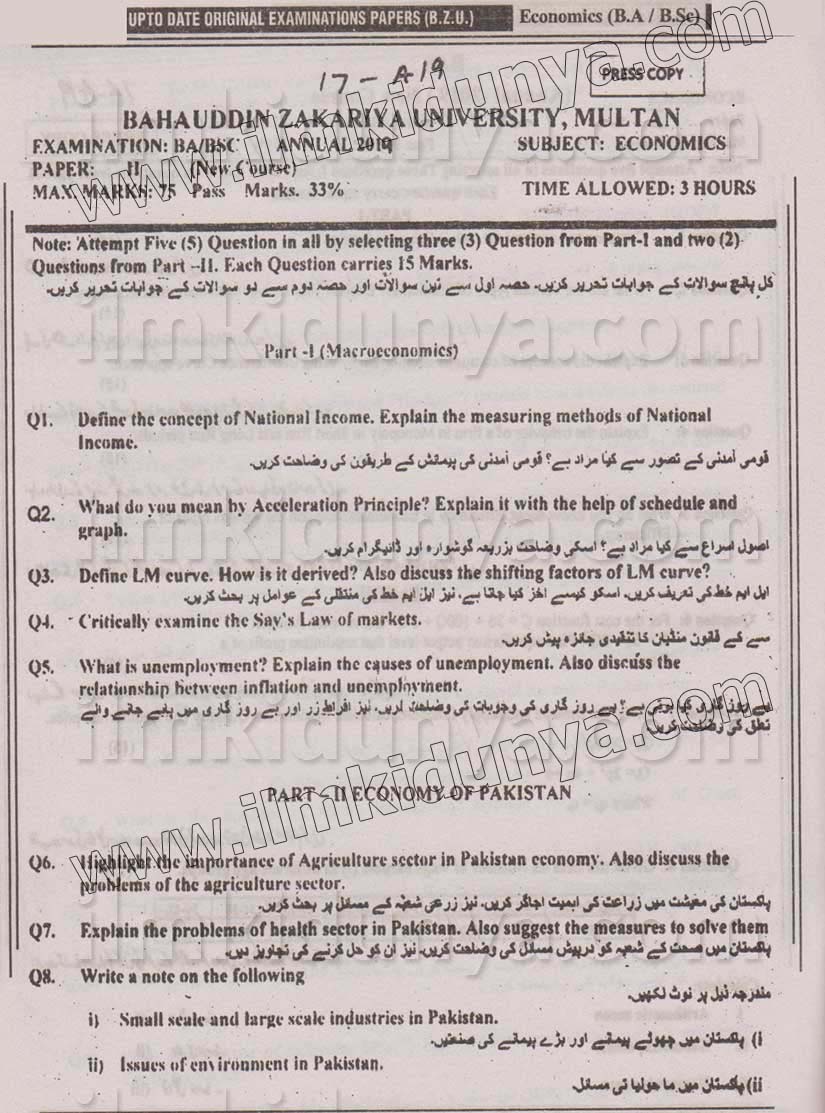 UPTO DATE ORIGINAL EXAMINATIONS PAPERS (B.Z.U.) Economics (B.A / B.Sc)
17-A19
PRESS COPY
BAHAUDDIN ZAKARIYA UNIVERSITY, MULTAN
EXAMINATION: BA/BSC ANNUAL 2019 SUBJECT: ECONOMICS
PAPER: II (New Course)
MAX MARKS: 75 Pass Marks. 33% TIME ALLOWED: 3 HOURS
Note: Attempt Five (5) Question in all by selecting three (3) Question from Part-I and two (2)
Questions from Part –II. Each Question carries 15 Marks.
کل پانچ سوالات کے جوابات تحریر کریں۔ حصہ اول سے تین سوالات اور حصہ دوم سے دو سوالات کے جوابات تحریر کریں۔
Part -I (Macroeconomics)
Q1. Define the concept of National Income. Explain the measuring methods of National
Income.
قومی آمدنی کے تصور سے کیا مراد ہے؟ قومی آمدنی کی پیمائش کے طریقوں کی وضاحت کریں۔
Q2. What do you mean by Acceleration Principle? Explain it with the help of schedule and
graph.
اصول اسراع سے کیا مراد ہے؟ اسکی وضاحت بزریعہ گوشوارہ اور ڈائیگرام کریں۔
Q3. Define LM curve. How is it derived? Also discuss the shifting factors of LM curve?
ایل ایم خط کی تعریف کریں۔ اسکو کیسے اخز کیا جاتا ہے، نیز ایل ایم خط کی منتقلی کے عوامل پر بحث کریں۔
Q4. Critically examine the Say's Law of markets.
سے کے قانون منڈیان کا تنقیدی جائزہ پیش کریں۔
Q5. What is unemployment? Explain the causes of unemployment. Also discuss the
relationship between inflation and unemployment.
بے روز گاری کیا ہوتی ہے؟ بے روز گاری کی وجوہات کی وضاحت کریں۔ نیز افراط زر اور بے روز گاری میں پایے جانے والے
تعلق کی وضاحت کریں۔
PART – II ECONOMY OF PAKISTAN
Q6. Highlight the importance of Agriculture sector in Pakistan economy. Also discuss the
problems of the agriculture sector.
پاکستان کی معیشت میں زراعت کی اہمیت اجاگر کریں۔ نیز زرعی شعبہ کے مسائل پر بحث کریں۔
Q7. Explain the problems of health sector in Pakistan. Also suggest the measures to solve them
پاکستان میں صحت کے شعبہ کو درپیش مسائل کی وضاحت کریں۔ نیز ان کو حل کرنے کی تجاویز دیں۔
Q8. Write a note on the following
مندرجہ ذیل پر نوٹ لکھیں۔
i) Small scale and large scale industries in Pakistan.
i) پاکستان میں چھوٹے پیمانے اور بڑے پیمانے کی صنعتیں۔
ii) Issues of environment in Pakistan.
ii) پاکستان میں ما حولیا تی مسائل۔
www.ilmkidunya.com
ilmkidunya.com
ilmkidunya.com
www.ilmkidunya.com